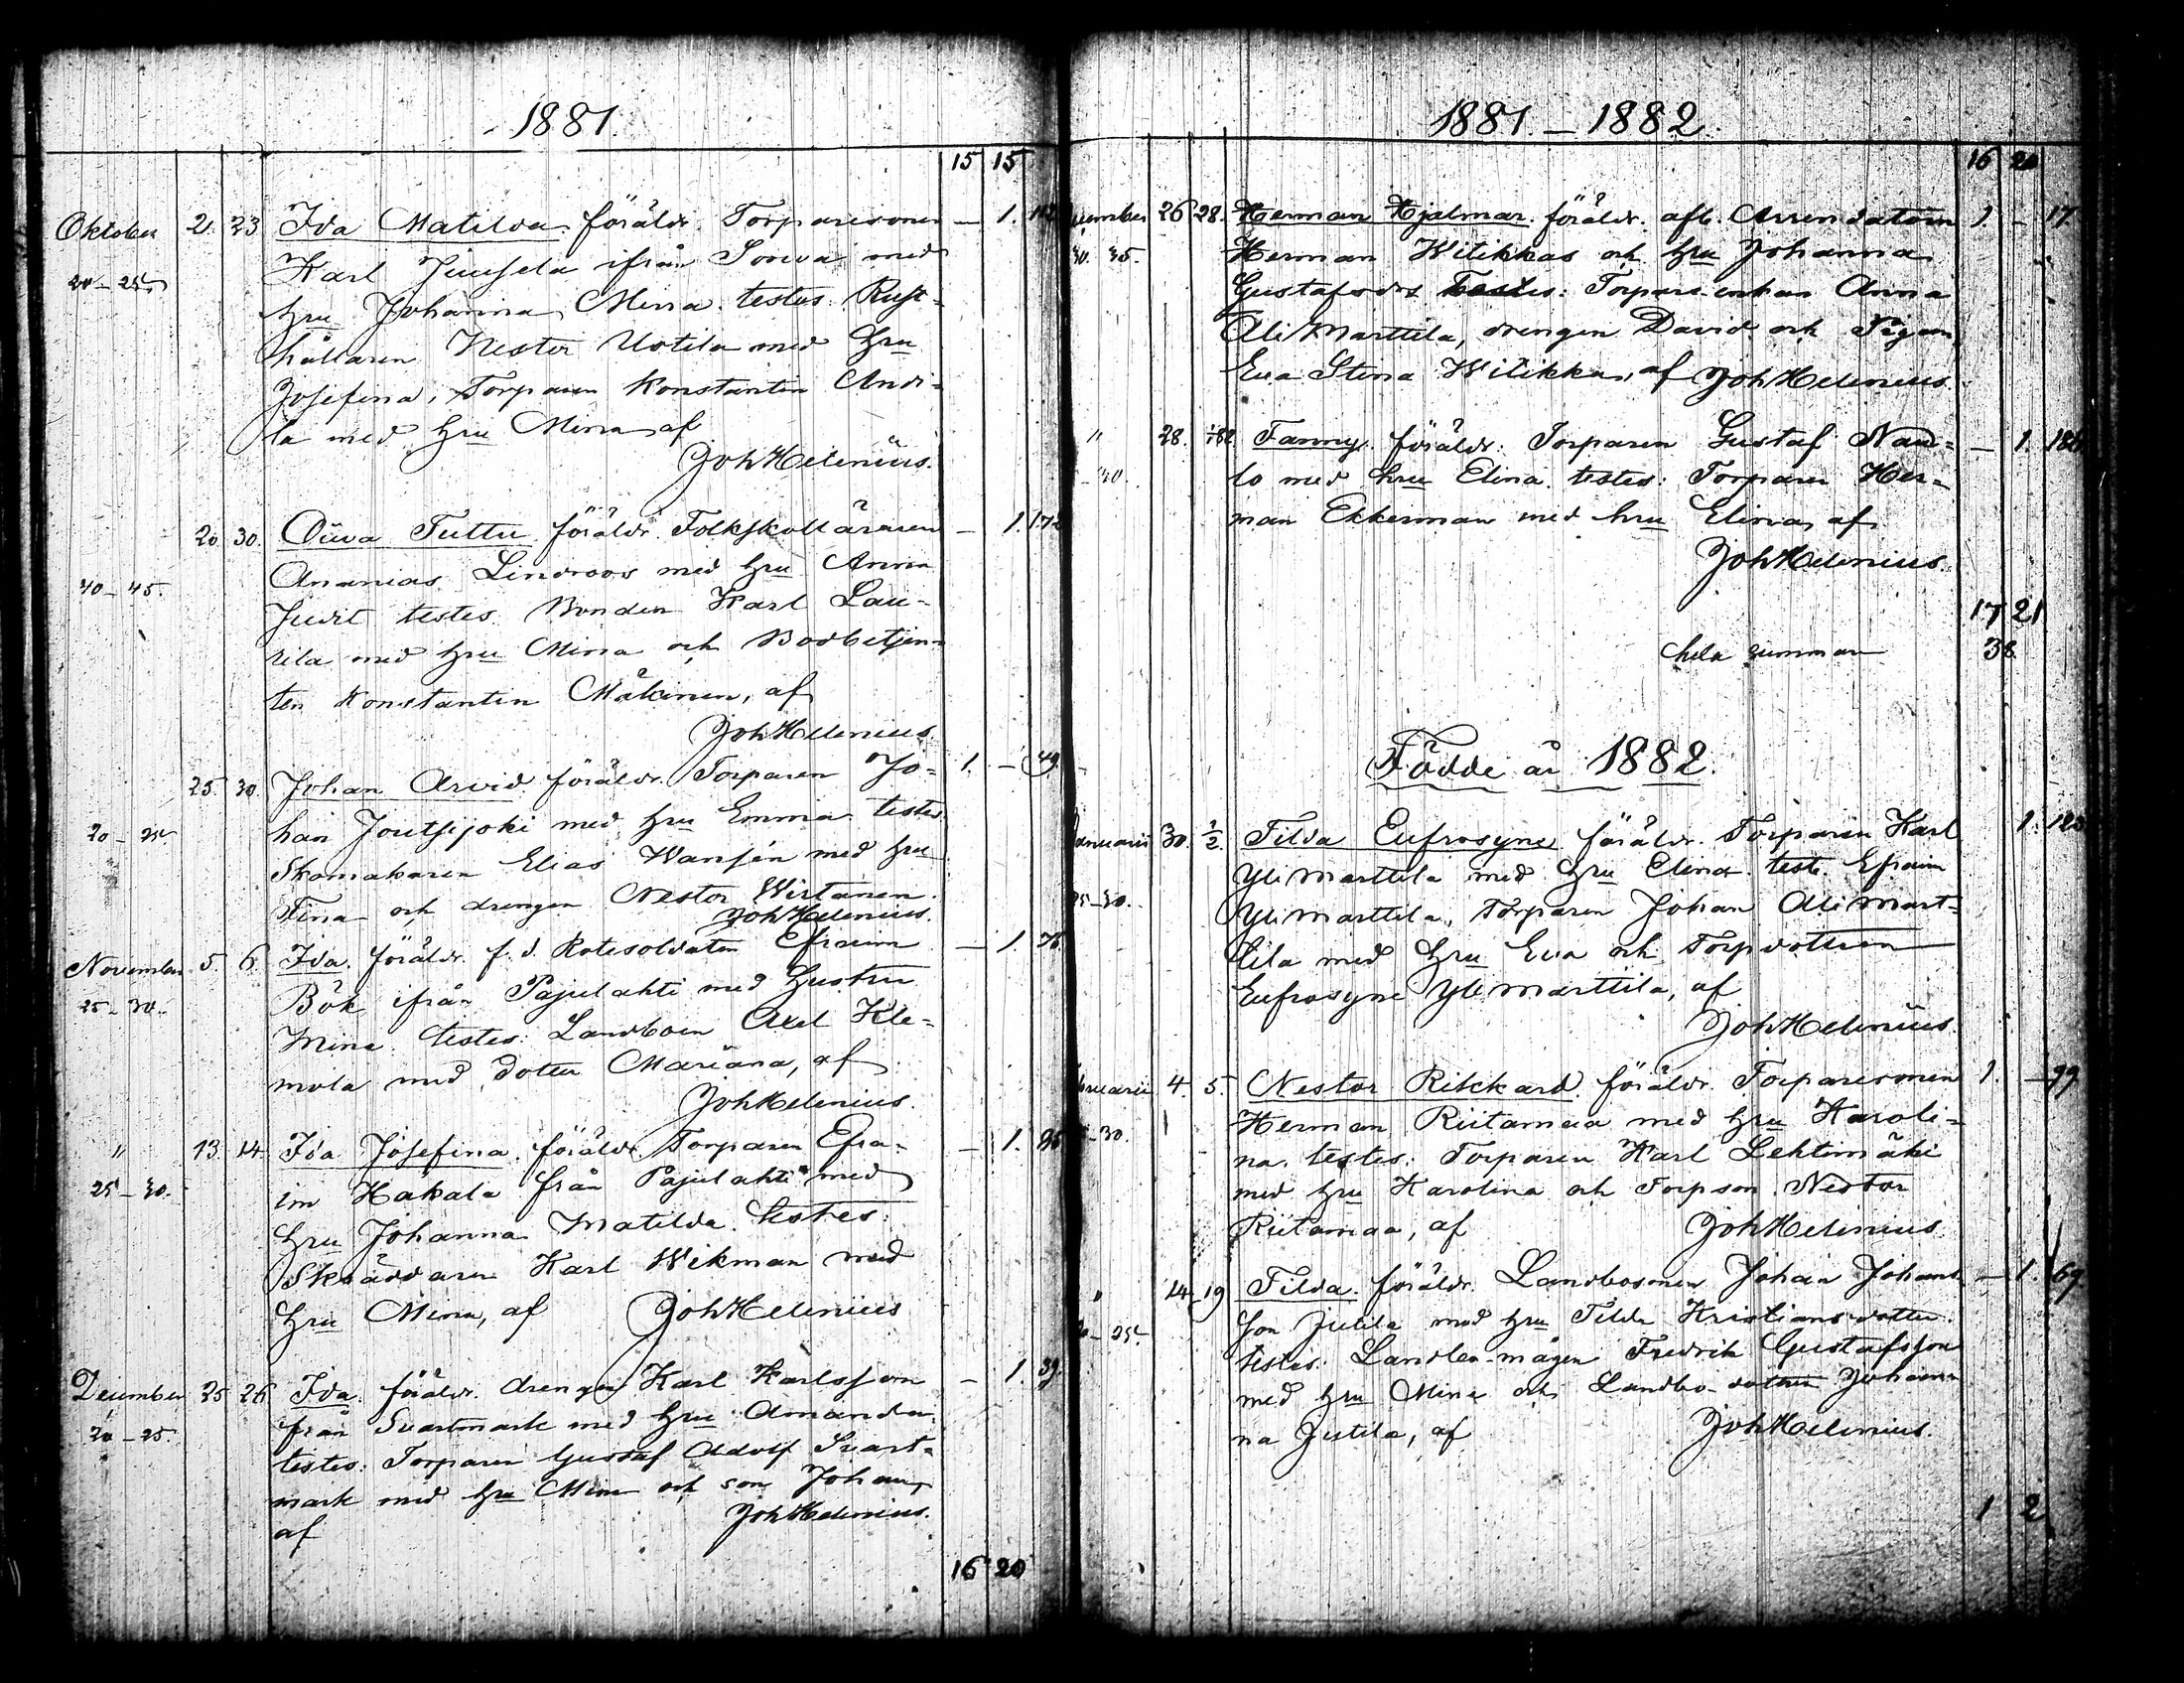 1881.
15 15
Oktober 21. 23. Ida Matilda. föräldr. Torparesonen — 1. 112.
20–25. Karl Juusela ifrån Sorva med
hru Johanna Mina. testes: Rust-
hållaren Nestor Uotila med hru
Josefina, Torparen Konstantin Andi-
la med hru Mina, af
Joh Helenius.
20. 30. Oiva Tuttu. föräldr. Folkskolläraren — 1. 172
40–45. Ananias Lindroos med hru Anna
Judit testes Bonden Karl Lau-
rila med hru Mina och Bodbetjen-
ten Konstantin Mäkinen, af
Joh Helenius.
25. 30. Johan Arvid. föräldr. Torparen Jo- 1. — 49.
20–25. han Joutsijoki med hru Emma testes
Skomakaren Elias Wansén med hru
Fina och drengen Nestor Wirtanen.
Joh Helenius.
November 5. 6. Ida. föräldr. f. d. Rotesoldaten Efraim — 1. 76.
25–30. Bök ifrån Pajulahti med hustru
Mina. testes: Landboen Axel Kle-
mola med dotter Mariana, af
Joh Helenius.
" 13. 14. Ida Josefina. föräldr Torparen Efra- — 1.
25–30. im Hakala från Pajulahti med
hru Johanna Matilda. testes:
Skräddaren Karl Wikman med
hru Mina, af Joh Helenius
December 25 26 Ida. föräldr. drengen Karl Karlsson — 1. 39.
20–25. från Svartmark med hru Amanda.
testes: Torparen Gustaf Adolf Svart-
mark med hru Mina och son Johan,
af Joh Helenius.
16 20
1881–1882.
16 20
cember 26 28. Herman Hjalmar. föräldr. afl. Arrendatorn 1. — 17.
30. 35. Herman Witikkas och hru Johanna
Gustafsdr Testes: Torpare-enkan Anna
Ali Marttila, drengen David och Pigan
Eva Stina Witikka, af Joh Helenius.
" 28. 1/82 Fanny. föräldr: Torparen Gustaf Nau- — 1.
40. lo med hru Elina. testes: Torparen Her-
man Ekkerman med hru Elina, af
Joh Helenius.
17 21
hela summan 38.
Födde år 1882.
anuarii 30. 1/2. Tilda Eufrosyne föräldr. Torparen Karl 1. 123
25–30. Yli Marttila med hru Elina. teste. Efraim
Yli Marttila, Torparen Johan Ali Mart-
tila med hru Eva och Torpdottern
Eufrosyne Yli Marttila, af
Joh Helenius.
bruarii 4. 5. Nestor Rikkard. föräldr. Torparesonen 1. — 99
–30. Herman Riitamaa med hru Karoli-
na. testes: Torparen Karl Lehtimäki
med hru Karolina och Torpson Nestor
Riitamaa, af Joh Helenius.
" 14 19 Tilda. föräldr. Landbosonen Johan Johans- — 1. 69
–25. son Jutila med hru Tilda Kristiansdotter.
testes: Landbo-mågen Fredrik Gustafsson
med hru Mina och Landbo-dotter Johan-
na Jutila, af Joh Helenius.
1 2